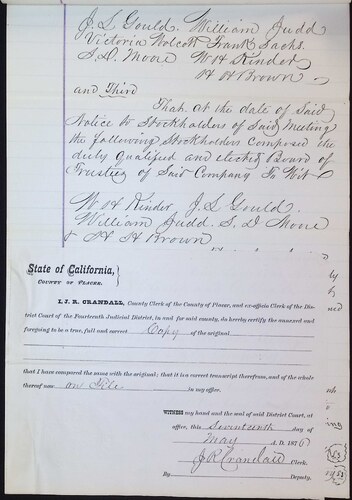 J. S. Gould. William Judd
Victoria Wolcott Frank Sachs.
S. D. Moore W H Kinder
H H Brown
and Third
That at the date of Said
Notice to Stockholders of Said Meeting
the following Stockholders Composed the
duly Qualified and elected Board of
Trustees of Said Company To Wit
W H Kinder J. S. Gould.
William Judd. S. D Moore
& H H Brown
State of California,
COUNTY OF PLACER.
I, J. R. CRANDALL, County Clerk of the County of Placer, and ex-officio Clerk of the Dis-
trict Court of the Fourteenth Judicial District, in and for said county, do hereby certify the annexed and
foregoing to be a true, full and correct Copy of the original
that I have compared the same with the original; that it is a correct transcript therefrom, and of the whole
thereof now on file in my office.
WITNESS my hand and the seal of said District Court, at
office, this Seventeenth day of
May A. D. 1876
J R Crandall Clerk.
By Deputy.